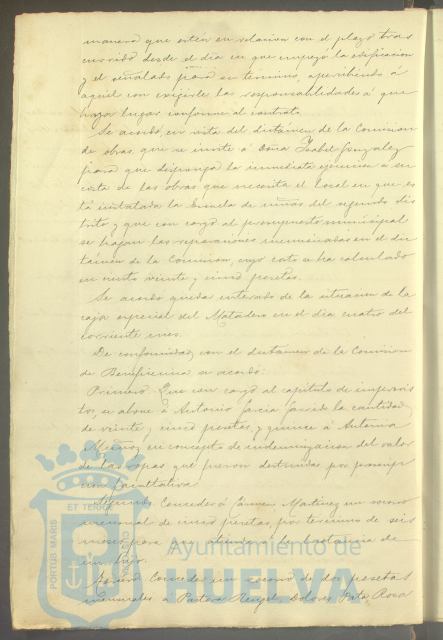 manera que estén en relacion con el plazo tras
currido desde el dia en que empezó la edificacion
y el señalado para su termino, apercibiendo á
aquel con exigirle las responsabilidades á que
haya lugar conforme al contrato.
Se acordó, en vista del dictámen de la Comision
de obras que se invite á Doña Isabel Gonzalez
para que disponga la inmediata ejecucion a su
costa de las obras que necesita el local en que es
tá instalada la Escuela de niñas del segundo dis
trito y que con cargo al presupuesto municipal
se hagan las reparaciones mencionadas en el dic
támen de la Comision, cuyo costo se ha calculado
en ciento veinte y cinco pesetas.
Se acordó quedar enterado de la situacion de la
caja especial del Matadero en el dia cuatro del
corriente mes.
De conformidad con el dictamen de la Comision
de Beneficencia se acordó:
Primero. Que con cargo al capitulo de imprevis
tos, se abone á Antonio Garcia la cantidad
de veinte y cinco pesetas, y quince á Antonia
en concepto de indemnizacion del valor
de las ropas que fueron destruidas por prescrip
cion facultativa.
Segundo. Conceder á Carmen Martinez un socorro
mensual de cinco pesetas, por termino de seis
meses para que atienda á la lactancia de
un hijo.
Conceder un socorro de dos pesetas
mensuales a Pastora Rengel, Dolores Rosa
PORTUS MARIS
ET TERRAE
CUSTODIA
Ayuntamiento de
HUELVA